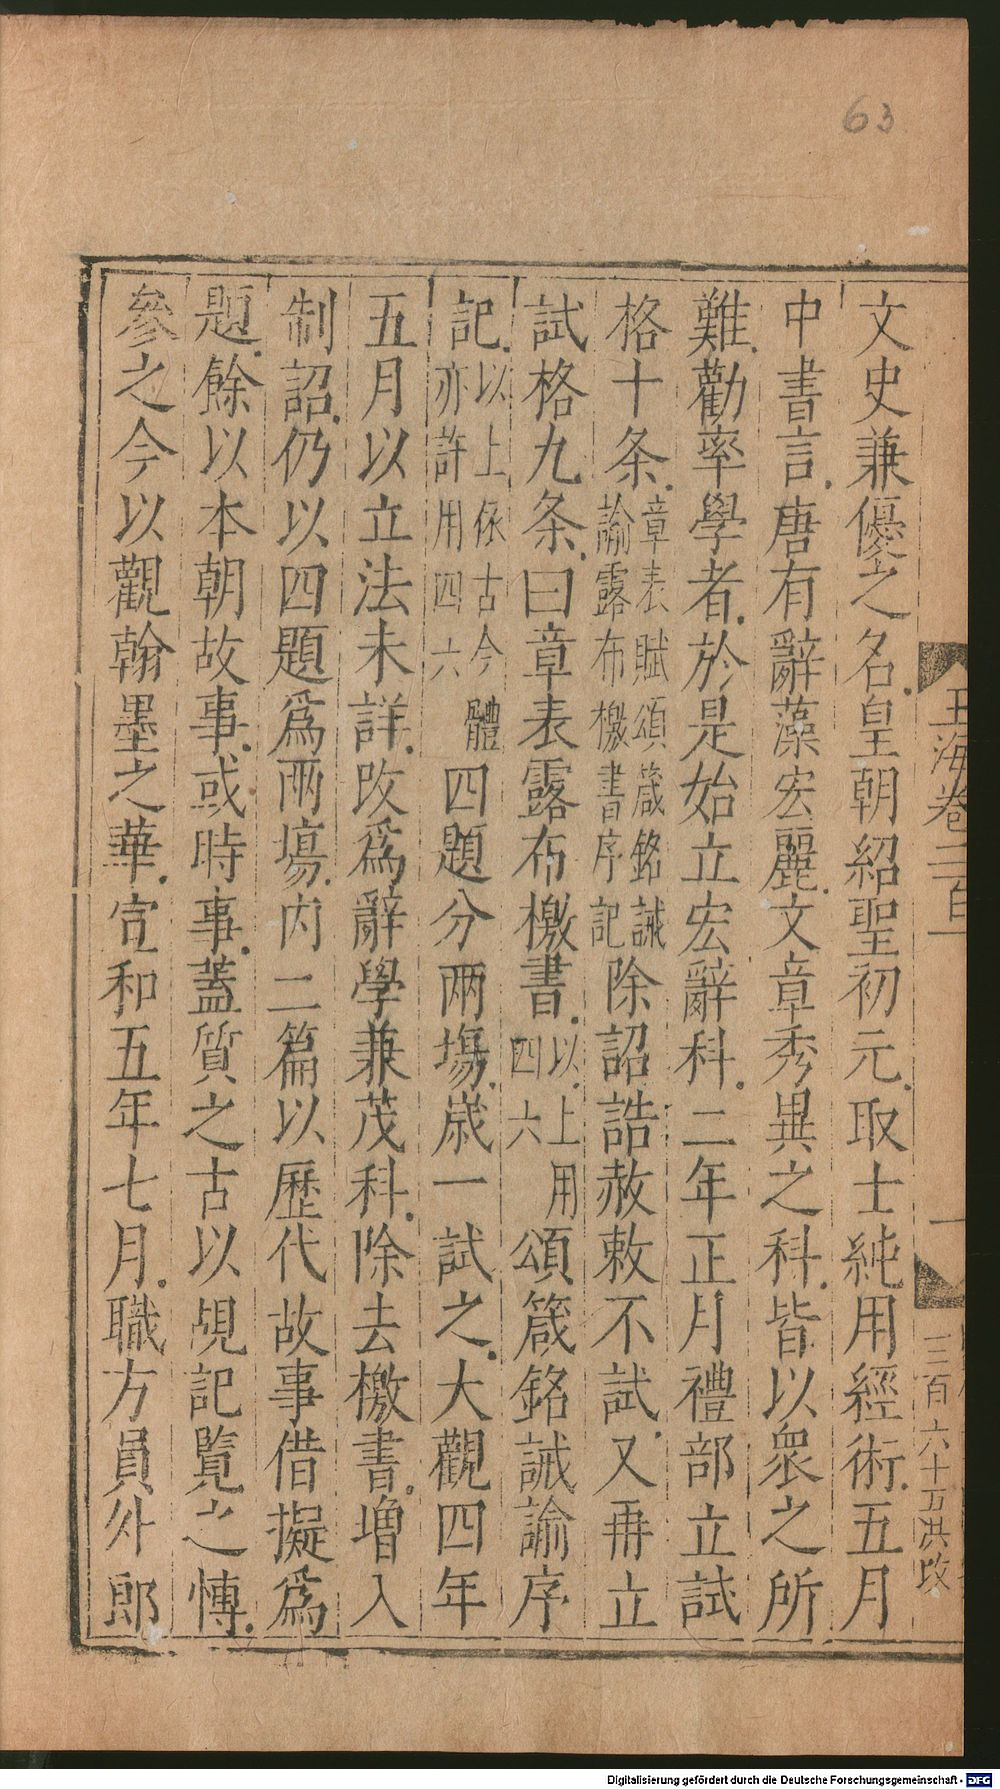 63
文史兼優之名皇朝紹聖初元取士純用經術五月
中書言唐有辭藻宏麗文章秀異之科皆以衆之所
難勸率學者於是始立宏辭科二年正月禮部立試
格十条章表賦頌箴銘誡諭露布檄書序記除詔誥赦敕不試又再立
試格九条曰章表露布檄書以上用四六頌箴銘誡諭序
記以上依古今體亦許用四六四題分兩場歲一試之大觀四年
五月以立法未詳改爲辭學兼茂科除去檄書增入
制詔仍以四題爲兩場內二篇以歷代故事借擬爲
題餘以本朝故事或時事蓋質之古以覘記覽之愽
參之今以觀翰墨之華宣和五年七月職方員外郎
玉海卷二百一
一
三百六十五洪改
Digitalisierung gefördert durch die Deutsche Forschungsgemeinschaft - DFG